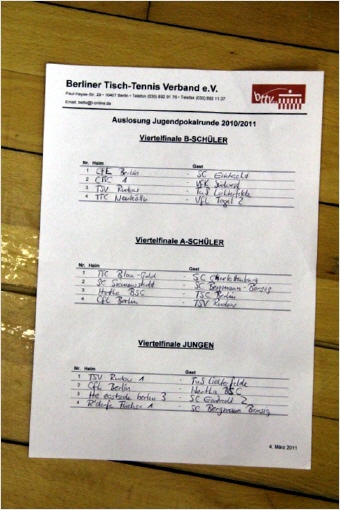 Berliner Tisch-Tennis Verband e.V.
Paul-Heyse-Str. 29 • 10407 Berlin • Telefon (030) 892 91 76 • Telefax (030) 892 11 37
Email: bettv@t-online.de
bttv
Auslosung Jugendpokalrunde 2010/2011
Viertelfinale B-SCHÜLER
Nr. Heim Gast
1 CfL Berlin - SC Eintracht
2 1 - VfK Südwest
3 TSV Rudow - TuS Lichterfelde
4 TTC Neukölln - VfL Tegel 2
Viertelfinale A-SCHÜLER
Nr. Heim Gast
1 TTC Blau-Gold - SC Charlottenburg
2 SC Siemensstadt - SC Bergmann-Borsig
3 Hertha BSC - TSC Berlin
4 CfL Berlin - TSV Rudow
Viertelfinale JUNGEN
Nr. Heim Gast
1 TSV Rudow 1 - TuS Lichterfelde
2 CfL Berlin - Hertha BSC
3 ttc eastside berlin 3 - SC Eintracht 2
4 Füchse 1 - SC Bergmann Borsig
4. März 2011